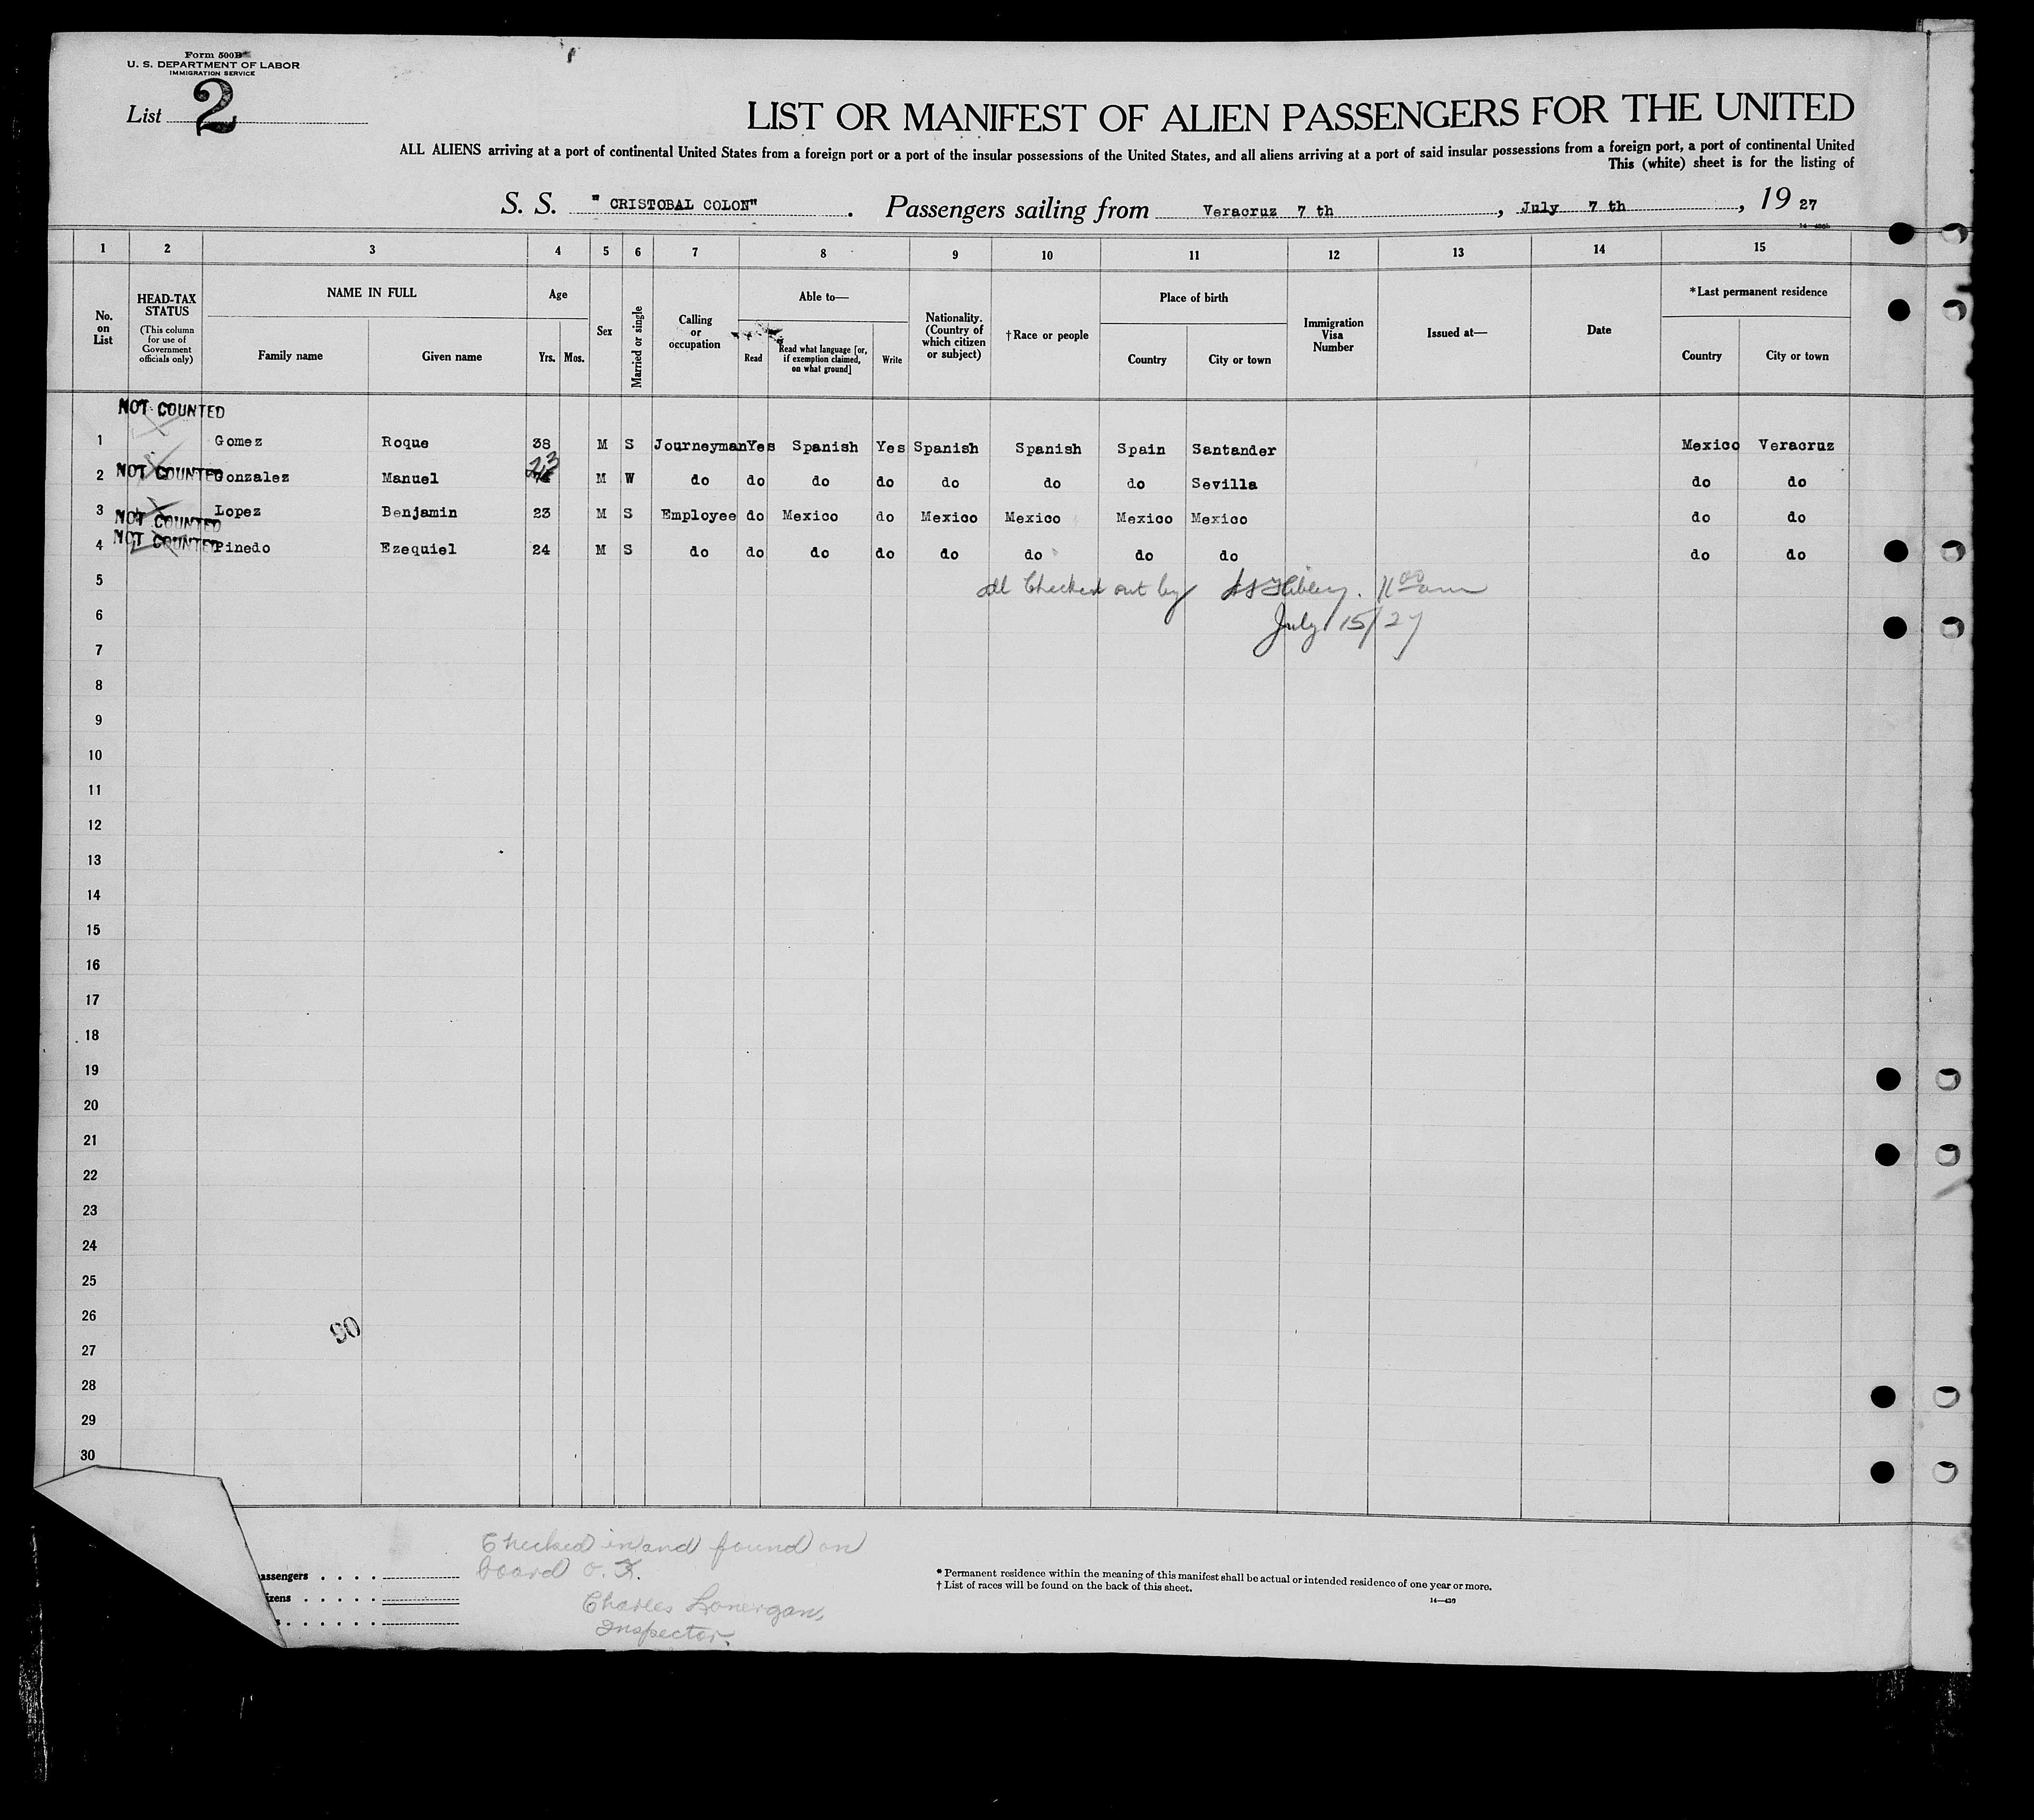 Form 500B
U. S. DEPARTMENT OF LABOR
IMMIGRATION SERVICE
List 2
LIST OR MANIFEST OF ALIEN PASSENGERS FOR THE UNITED
ALL ALIENS arriving at a port of continental United States from a foreign port or a port of the insular possessions of the United States, and all aliens arriving at a port of said insular possessions from a foreign port, a port of continental United
This (white) sheet is for the listing of
S. S. " CRISTOBAL COLON" . Passengers sailing from Veracruz 7 th , July 7 th , 19 27
1 2 3 4 5 6 7 8 9 10 11 12 13 14 15
No. on List
HEAD-TAX STATUS
(This column for use of Government officials only)
NAME IN FULL
Family name Given name
Age
Yrs. Mos.
Sex
Married or single
Calling or occupation
Able to—
Read
Read what language [or, if exemption claimed, on what ground]
Write
Nationality. (Country of which citizen or subject)
†Race or people
Place of birth
Country City or town
Immigration Visa Number
Issued at—
Date
*Last permanent residence
Country City or town
NOT COUNTED
1 Gomez Roque 38 M S Journeyman Yes Spanish Yes Spanish Spanish Spain Santander Mexico Veracruz
2 NOT COUNTED Gonzalez Manuel 23 M W do do do do do do do Sevilla do do
3 NOT COUNTED Lopez Benjamin 23 M S Employee do Mexico do Mexico Mexico Mexico Mexico do do
4 NOT COUNTED Pinedo Ezequiel 24 M S do do do do do do do do do do
5 all Checked out by 11 00 am
6 July 15/27
7
8
9
10
11
12
13
14
15
16
17
18
19
20
21
22
23
24
25
26
27
28
29
30
Checked in and found on
board o. K.
Charles Lonergan,
Inspector.
assengers . . . .
izens . . . . .
s . . . . . .
* Permanent residence within the meaning of this manifest shall be actual or intended residence of one year or more.
† List of races will be found on the back of this sheet.
14—430